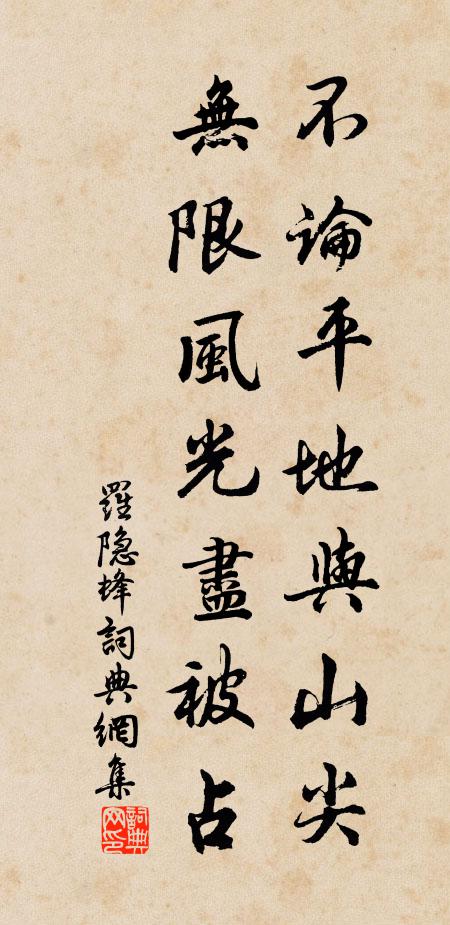 不論平地與山尖
無限風光盡被占
羅隐蜂詞典網集
詞典网印